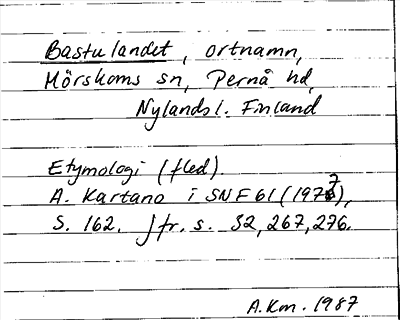 Bastulandet, ortnamn,
Mörskoms sn, Pernå hd,
Nylands l. Finland
Etymologi (fled).
A. Kartano i SNF 61 (1977),
S. 162. Jfr. s. 32, 267, 276.
A.Km. 1987